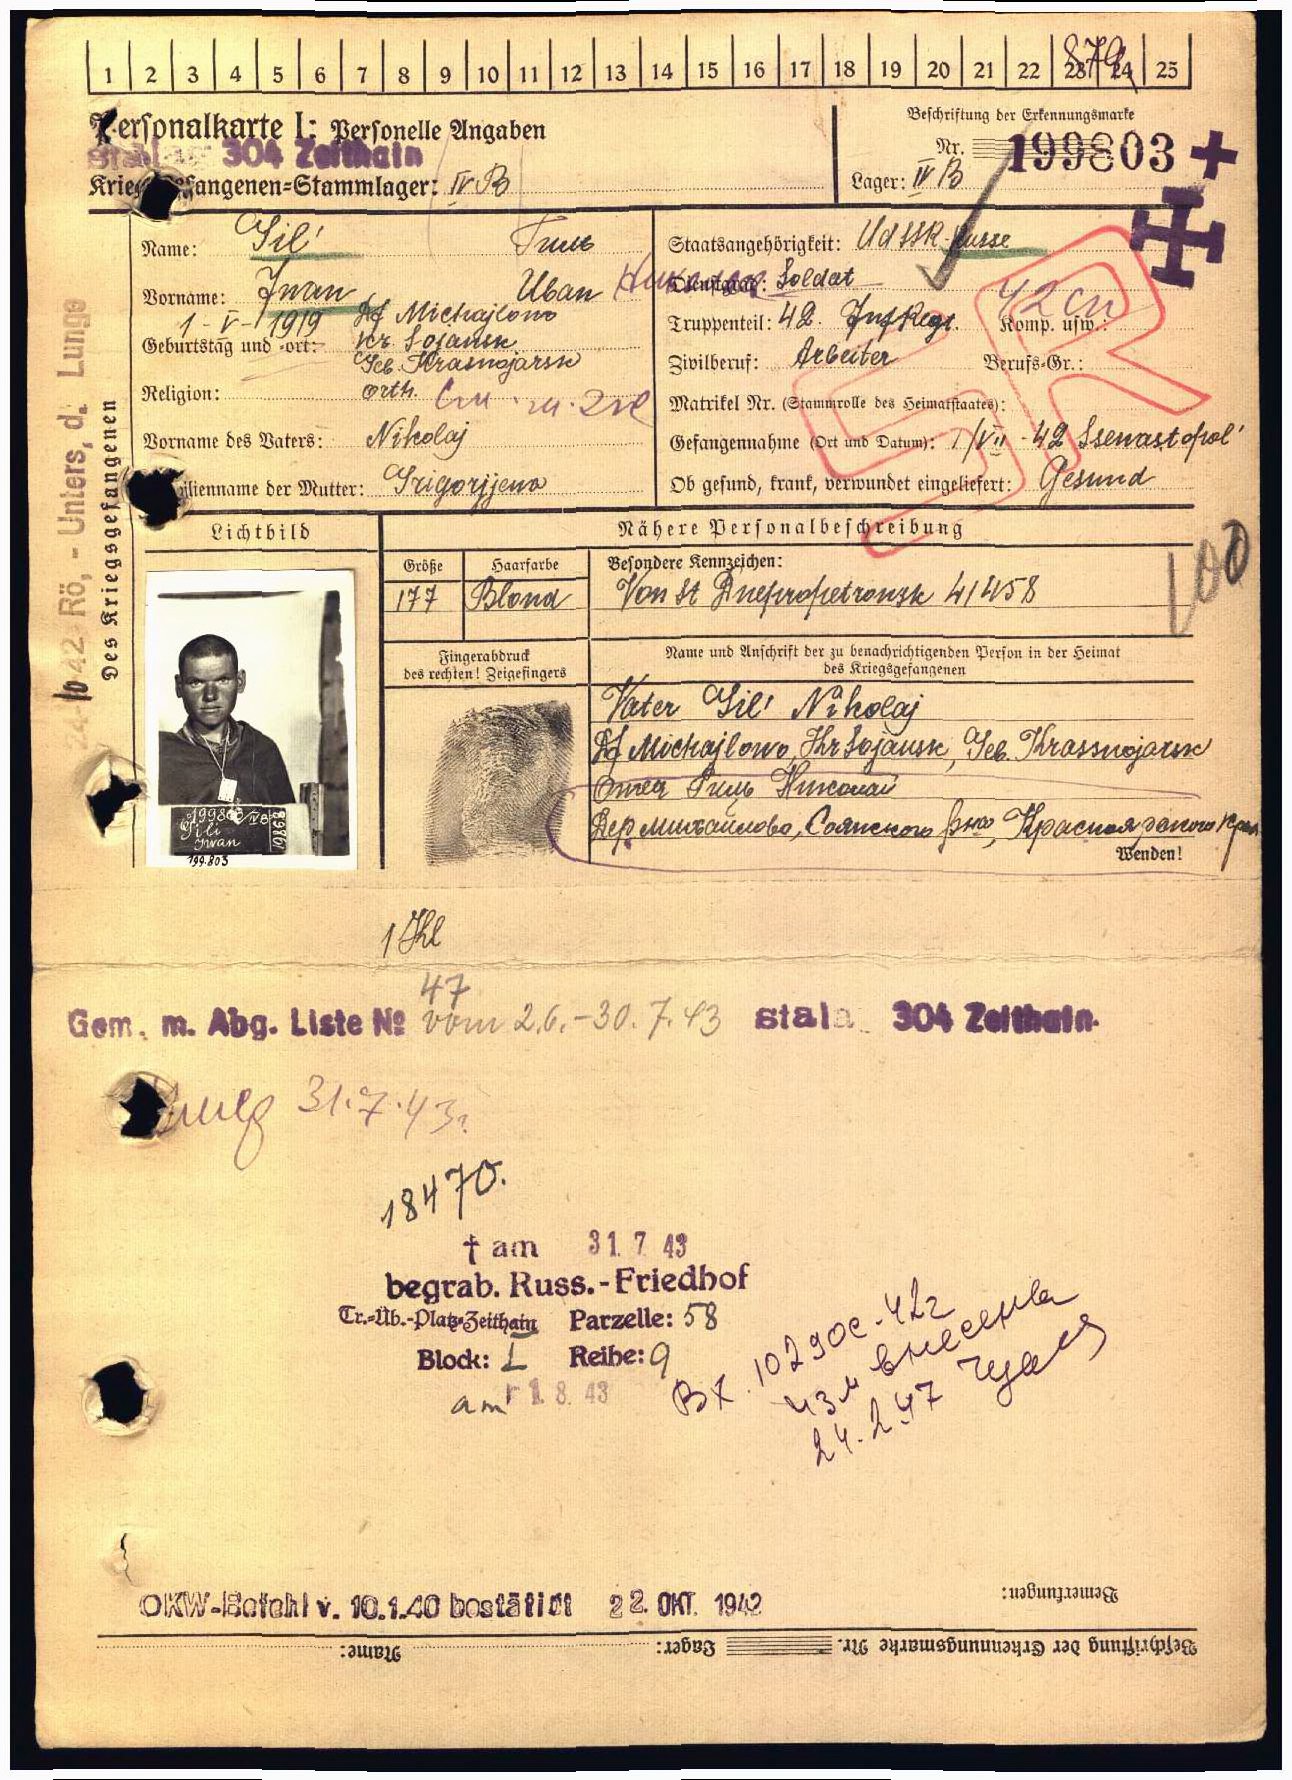 1 2 3 4 5 6 7 8 9 10 11 12 13 14 15 16 17 18 19 20 21 22 23 24 25
879
Personalkarte I: Personelle Angaben
304 Zeithain
Kriegsgefangenen-Stammlager: IV B
Beschriftung der Erkennungsmarke
Nr. 199803
Lager: IV B
Des Kriegsgefangenen
42 Rö, - Unters, d. Lunge
Name: Gil' Гиль
Vorname: Iwan Иван
Geburtstag und -ort: 1-V-1919 Df Michajlowo
Kr. Sojansk
Geb. Krasnojarsk
Religion: orth.
Vorname des Vaters: Nikolaj
Familienname der Mutter: Grigorjjewa
Staatsangehörigkeit: UdSSR-Russe
Dienstgrad: Soldat
Truppenteil: 42. Inf Regt. Komp. usw.:
42 сп
Zivilberuf: Arbeiter Berufs-Gr.:
Matrikel Nr. (Stammrolle des Heimatstaates):
Gefangennahme (Ort und Datum): 1/VII-42 Ssewastopol'
Ob gesund, krank, verwundet eingeliefert: Gesund
SR
Lichtbild
Nähere Personalbeschreibung
Größe Haarfarbe Besondere Kennzeichen:
177 Blond Von St Dnepropetrowsk 41458
100
Fingerabdruck
des rechten! Zeigefingers
Name und Anschrift der zu benachrichtigenden Person in der Heimat
des Kriegsgefangenen
Vater Gil' Nikolaj
Df Michajlowo, Kr Sojansk, Geb. Krassnojarsk
Отец Гиль Николай
Дер Михайлово, Соянского р-на, Красноярского края
Wenden!
199803 IV B
Gili
Iwan
199.803
47
Gem. m. Abg. Liste No vom 2.6.-30.7.43 Stala 304 Zeithain.
31.7.43г
18470.
† am 31. 7. 43
begrab. Russ.-Friedhof
Tr.-Üb.-Platz-Zeithain Parzelle: 58
Block: I Reihe: 9
am 1. 8. 43
Вх. 10290с-42г
изм внесены
24.2.47
OKW-Befehl v. 10.1.40 bestätigt 22. OKT. 1942
Bemerkungen:
Beschriftung der Erkennungsmarke Nr. Lager: Name: